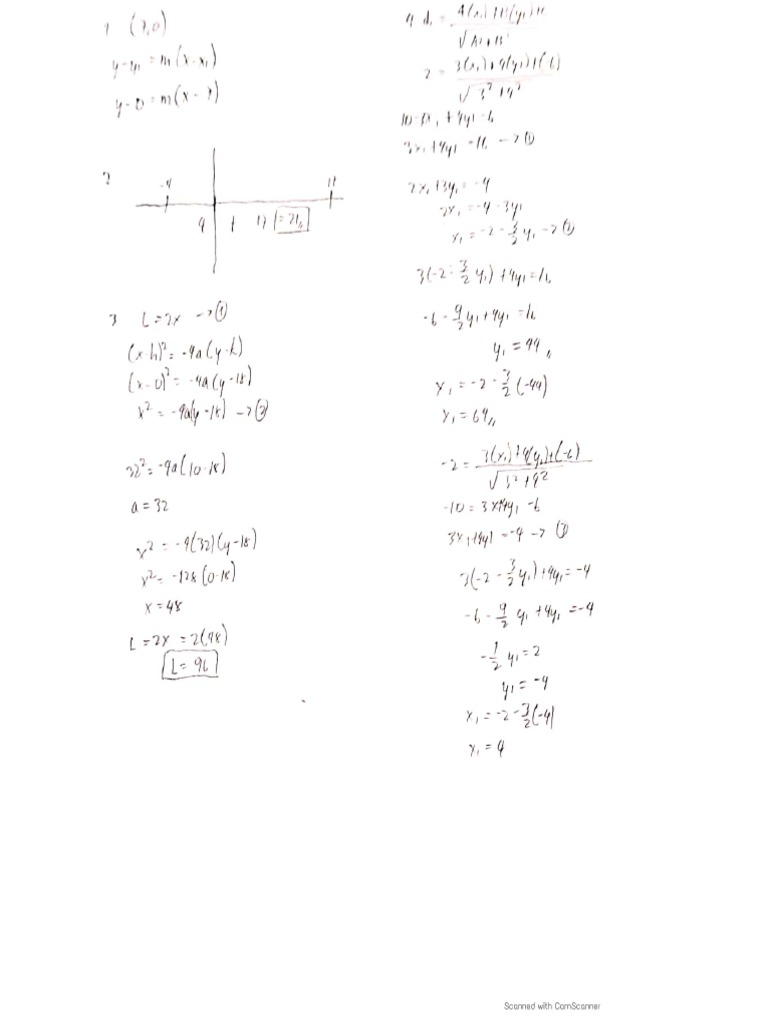 1 (7,0)
y-y₁ = m(x-x₁)
y-0 = m(x-7)
2
-4 17
4 + 17 = 21,,
3 L=2x → ①
(x-h)² = -4a(y-k)
(x-0)² = -4a(y-18)
x² = -4a(y-18) → ②
32² = -4a(10-18)
a = 32
x² = -4(32)(y-18)
x² = -128(0-18)
x = 48
L = 2x = 2(48)
L = 96
4 d₁ = A(x₁)+B(y₁)+C / √A²+B²
2 = 3(x₁)+4(y₁)+(-6) / √3²+4²
10 = 3x₁+4y₁-6
3x₁+4y₁ = 16 → ①
2x₁+3y₁ = -4
2x₁ = -4-3y₁
x₁ = -2-3/2 y₁ → ②
3(-2-3/2 y₁)+4y₁ = 16
-6-9/2 y₁+4y₁ = 16
y₁ = 44,,
x₁ = -2-3/2(-44)
x₁ = 64,,
-2 = 3(x₁)+4(y₁)+(-6) / √3²+4²
-10 = 3x+4y₁-6
3x₁+4y₁ = -4 → ③
3(-2-3/2 y₁)+4y₁ = -4
-6-9/2 y₁+4y₁ = -4
-1/2 y₁ = 2
y₁ = -4
x₁ = -2-3/2(-4)
x₁ = 4
Scanned with CamScanner